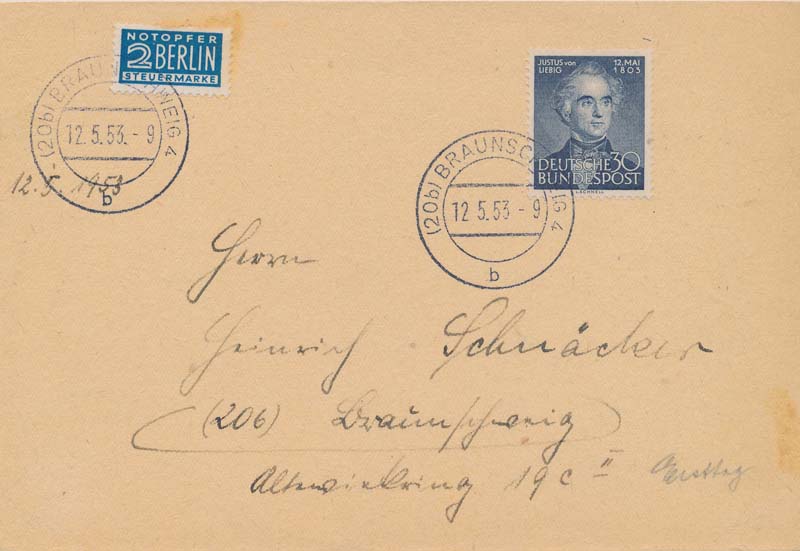 NOTOPFER
2 BERLIN
STEUERMARKE
(20b) BRAUNSCHWEIG 4
12.5.53.-9
b
12.5.1953
JUSTUS von LIEBIG
12. MAI 1803
DEUTSCHE 30
BUNDESPOST
LECHNELL
(20b) BRAUNSCHWEIG 4
12.5.53-9
b
Herrn
Heinrich Schnäcker
(20b) Braunschweig
Altewiekring 19c II
Ersttag